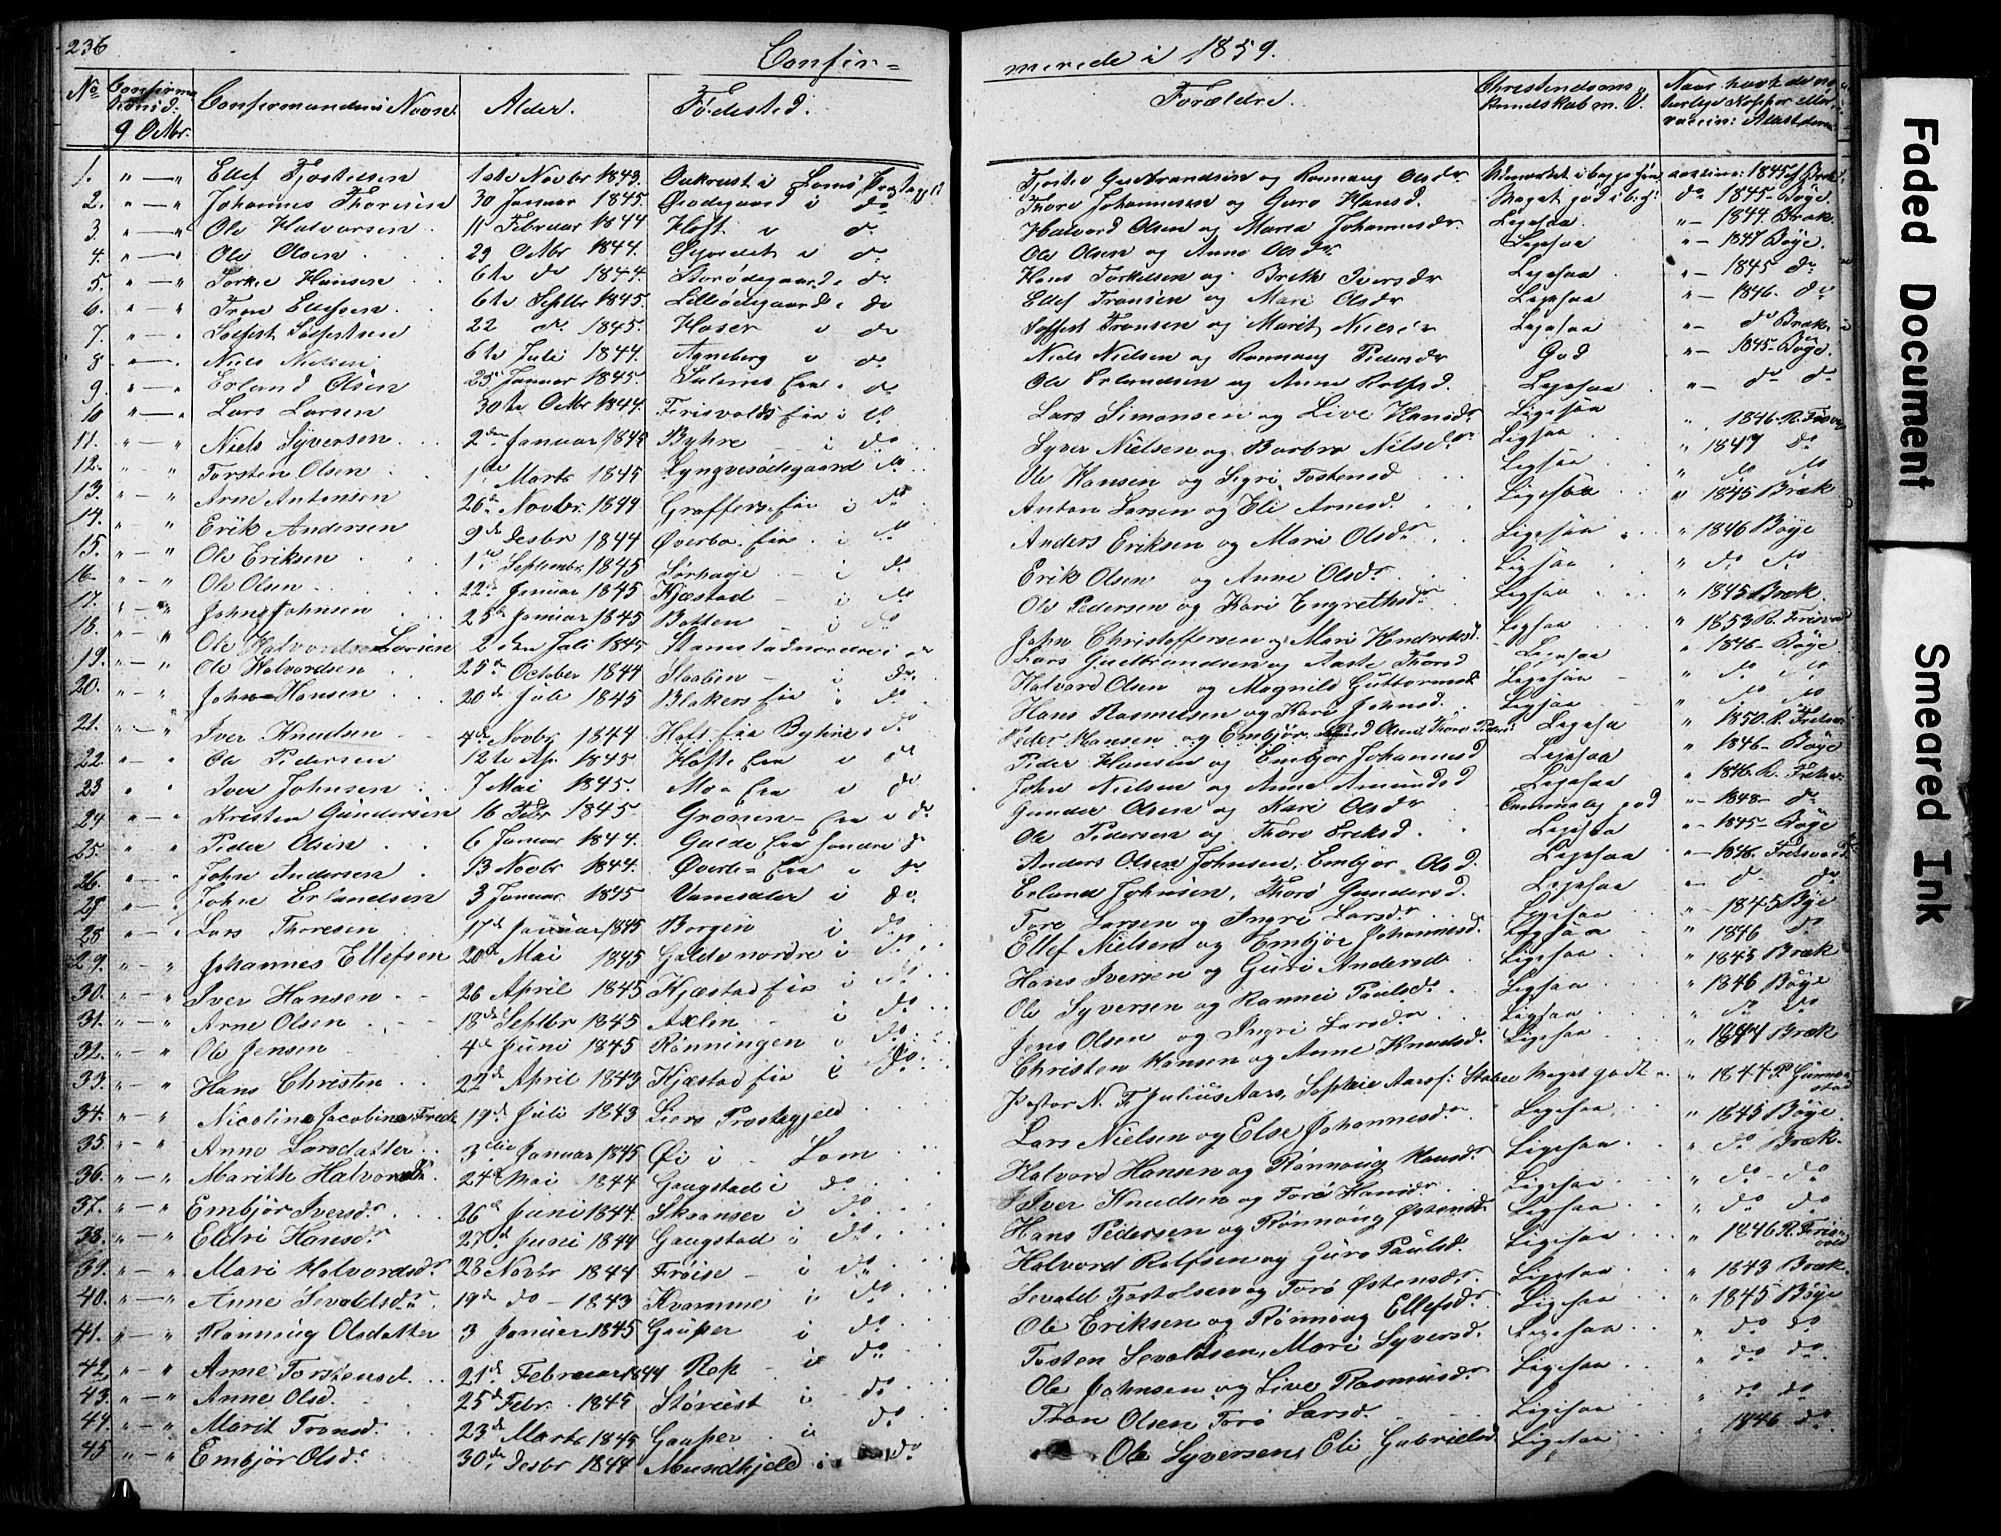 236
Confir=
merede i 1859.
No Confirma Confirmandens Navn. Alder. Fødested. Forældre. Christendoms Kundskab m. V.
9 Octbr.
1. " — " Ellef Tjostelsen 1ste Novbr 1843.
2. " — " Johannes Thoresen 30 Januar 1845. i do Thore Johannesen og Guro Hansd. Meget god do 1845 - Bøye.
3. " — " Ole Halvorsen 11 Februar 1844 Hoft i do Halvord Olsen og Maria Johannesdr Ligesaa " — 1844 Bræk.
4. " — " Ole Olsen 29 Octbr 1844. i do Ole Olsen og Anne Olsdr Ligesaa " — 1847 Bøye.
5. " — " Torkel Hansen 6te do 1844. Storødegaard i do Hans Torkelsen og Brit Iversdr Ligesaa " — 1845 do
6. " — " Tron Ellefsen 6te Septbr 1845. Lilleødegaard i do Ellef Tronsen og Mari Olsdr Ligesaa " — 1846. do
7. " — " Solfest Solfestsen 22 do 1845. i do Tronsen og Marit Ligesaa " — do Bræk.
8 " — " Niels Nielsen 6te Juli 1844. Agneberg i do Niels Nielsen og Rønnaug Pedersdr God " — 1845 - Bøye.
9 " — " Erland Olsen 25 Januar 1845. i do Ole Erlandsen og Anne Rolfsd. Ligesaa " — do do
10 " — " Lars Larsen 30te Octbr 1844. Frisvolds eie i do Lars Simonsen og Live Hansdr Ligesaa 1846 - R.
11. " — " Niels Syversen 2den Januar Byhre — i do Syver Nielsen og Barbra Nilsdr Ligsaa " 1847 do
12. " — " Torsten Olsen 1ste Marts 1845 Lyngvesødegaard do Ole Hansen og Sigri Tostensd Ligsaa " do do
13. " — " Arne Antonsen 26de Novbr. 1844 Graffers eie i do Anton Larsen og Eli Arnesd. Ligesaa " 1845 Bræk
14. " — " Erik Andersen 9de Desbr 1844 Øverbø. eie i do Anders Eriksen og Mari Olsdr Ligsaa " 1846 Bøye
15. " — " Ole Eriksen 1ste Septembr 1845 i do Erik Olsen og Anne Olsdr Ligsaa " do do
16 " — " Ole Olsen 22de Januar 1845 Kjæstad — i do Ole Pedersen og Kari Engrethsdr Ligsaa " 1845 Bræk.
17. " — " John Johnsen 25de Januar 1845 Botten — i do John Christoffersen og Mari Hendriksd. Ligsaa " 1853 R.
18. " — " Ole Halvordsen Larsen 2den Juli 1845 Stamstad nordre i do Lars Gudbrandsen og Aaste Thorsd Ligesaa " 1846 - Bøye
19. " — " Ole Halvordsen 25de October 1844 Staaben — i do. Halvord Olsen og Magnild Guttormsd Ligesaa " do do
20. " — " John Hansen 20de Juli 1845 Blakers eie i do. Hans Rasmussen og Kari Johnsd. Ligsaa " do do
21. " — " Iver Knudsen 4de Novbr 1844 Hoft eie Byhre do Ligesaa " 1850. R.
22. " — " Ole Pedersen 12te Ap. 1845 Hofts Eie i do Peder Hansen og Embjør Johannesd Ligesaa " 1846 - Bøye
23 " " Iver Johnsen 7 Mai 1845. Moe Eie i do John Nielsen og Anne Amundsd Ligesaa " — 1846. R.
24 " — " Kristen Gundersen 16 Febr 1845 Eie i do Gunder Olsen og Kari Olsdr god " — 1848 - do
25. " " Peder Olsen 6 Januar 1844. Galde Eie søndre do Ole Pedersen og Thore Eriksd. Ligesaa " — 1845 - Bøye
26. " — " John Andersen 13 Novbr 1844. Eie i do Anders Olsen Johnsen Embjør Olsd. Ligesaa " — 1846.
27 " — " John Erlandsen 3 Januar 1845 i do Erland Johnsen, Thorø Gundersd. Ligesaa " — do do
28 " — " Lars Thoresen 17de Januar 1845 Borgen i do Tore Larsen og Ingri Larsdr Ligesaa " 1845 Bøye
29. " — " Johannes Ellefsen 20de Mai 1845 Galde nordre i do Ellef Nielsen og Embjør Johannesd. Ligsaa " 1846 do
30. " — " Iver Hansen 26 April 1845 Kjæstad eie i do. Hans Iversen og Guri Andersd. Ligsaa " 1845 Bræk
31. " — " Arne Olsen 18de Septbr 1845 Axlen — i do Ole Syversen og Rannei Paulsdr Ligesaa " 1846 Bøye
32. " — " Ole Jensen 4de Juni 1845 Rønningen i do Jens Olsen og Ingri Larsdr Ligsaa " do do
33. " — " Hans Christen 22de April 1843 Kjæstad eie i do. Christen Hansen og Anne Knudsd. Ligesaa " 1844 Bræk
34. " — " Nicoline Jacobine Frede 19de Juli 1843 Liers Prestegjeld Pastor N. F. Julius Aars, Sophie Aars f: Meget godt " 1844 P.
35. " — " Anne Larsdatter 3die Januar 1845 Øi i Lom Lars Nielsen og Else Johannesdr Ligesaa " 1845 Bøye
36. " — " Marithe Halvorsdr 24de Mai 1844 Gaugstad i do Halvord Hansen og Rønnaug Hansdr Ligesaa " do Bræk
37. " — " Embjør Iversdr 26de Juni 1844. Skaanser i do Iver Knudsen og Torø Hansdr. Ligesaa " do - do
38. " — " Eldri Hansdr 27de Juni 1844 Gaugstad i do Hans Pedersen og Rønnaug Østensdr Ligsaa " do do
39. " — " Mari Halvordsdr 28 Novbr 1844 Frøise — i do Halvord Rolfsen og Guro Paulsd. Ligesaa " 1846 R.
40. " — " Anne Sevaldsdr 19de do — 1843 Kvamme i do Sevald Tostolsen og Torø Østensdr Ligesaa " 1843 Bræk.
41. " — " Rønnoug Olsdatter 3 Januar 1845 Gauper i do Ole Eriksen og Rønnoug Ellefsdr Ligesaa " 1845 Bøye
42. " — " Anne Torstensd. 21de Februar 1844 i do Tosten Sevaldsen, Mari Syversd. Ligesaa " do do
43. " — " Anne Olsd. 25de Febr. 1845 i do Ole Johnsen og Live Rasmusdr Ligesaa " do do
44. " — " Marit Tronsd. 23de Marts 1845 Gauper — i do Tron Olsen Torø Larsd. Ligesaa " do do
45 " — " Embjør Olsdr 30de Desbr 1844 Mundhjeld i do Ole Syversen, Eli Gabrielsd. Ligesaa " 1846 do
Faded Document
Smeared Ink